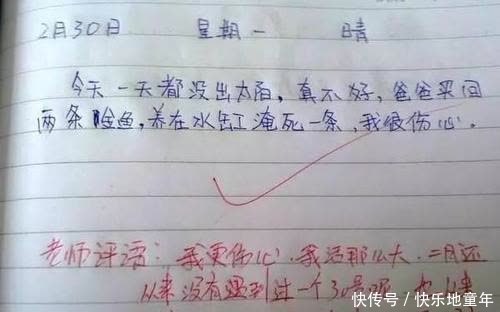 2月30日 星期一 晴
今天一天都没出太阳,真不好,爸爸买回
两条鱼,养在水缸淹死一条,我很伤心.
老师评语:我更伤心.我活那么大.二月还
从来没有遇到过一个30号呢.
快传号/快乐地童年